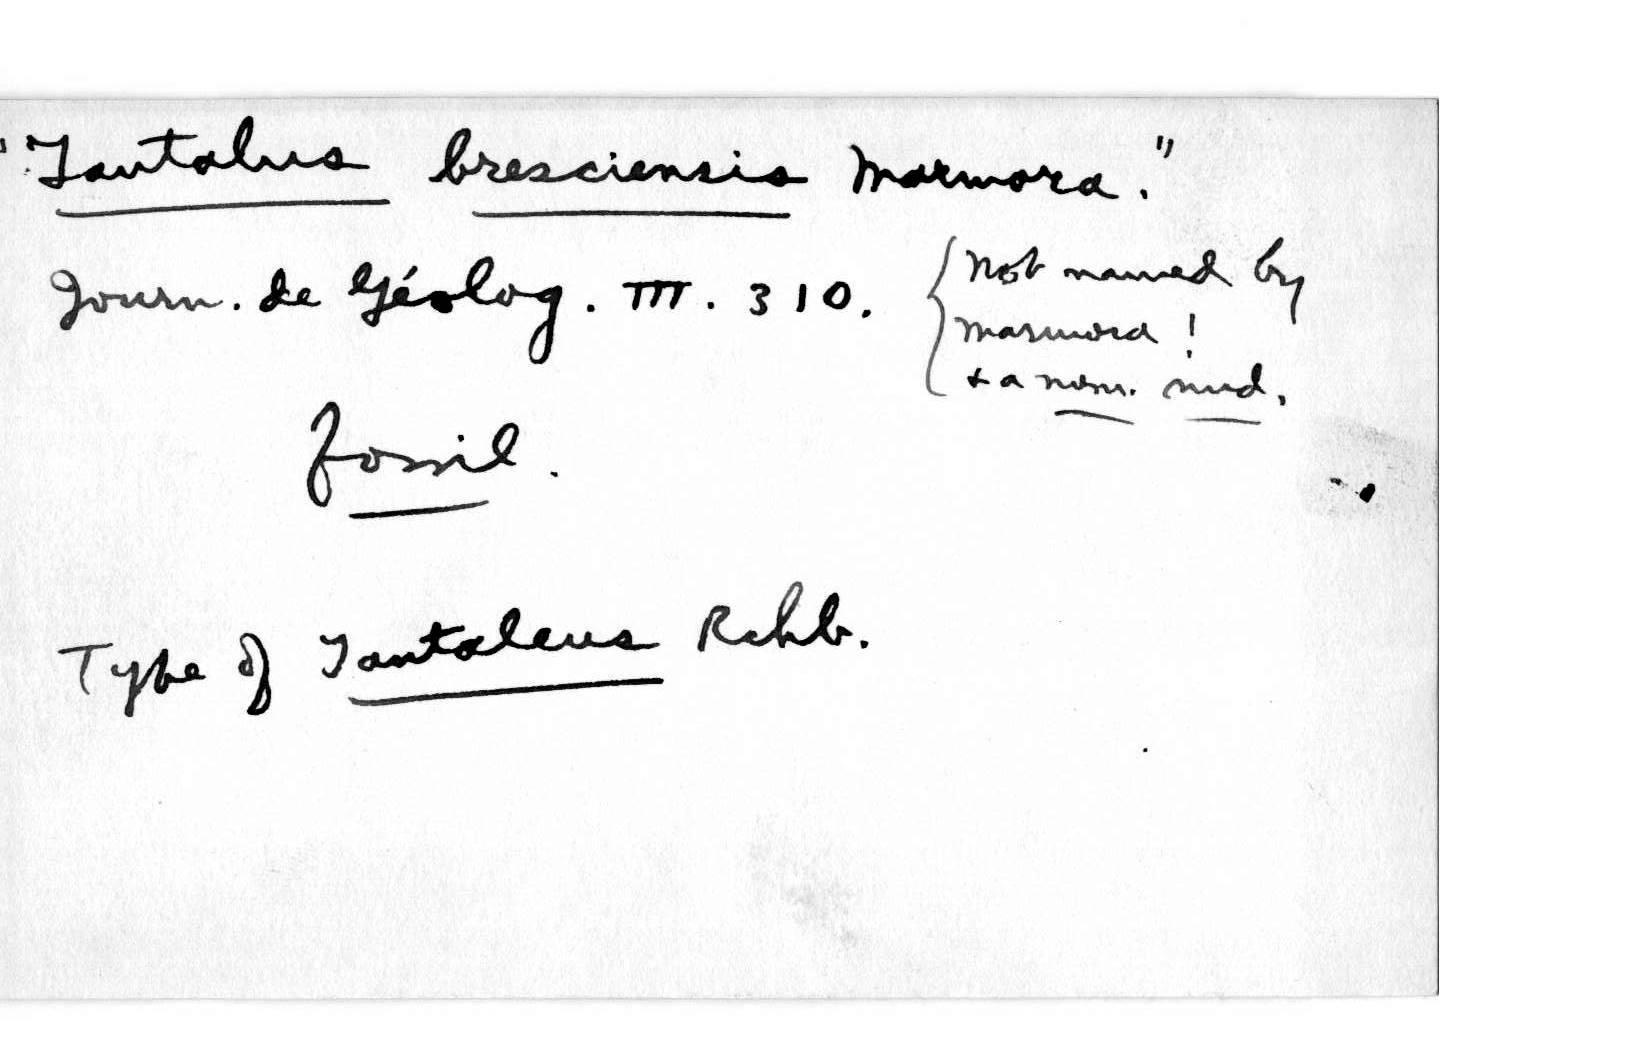 "Tantalus bresciensis Marmora."
Journ. de Géolog. III. 310.
Not named by
Marmora!
& a nom. nud.
fossil.
Type of Tantaleus Rchb.